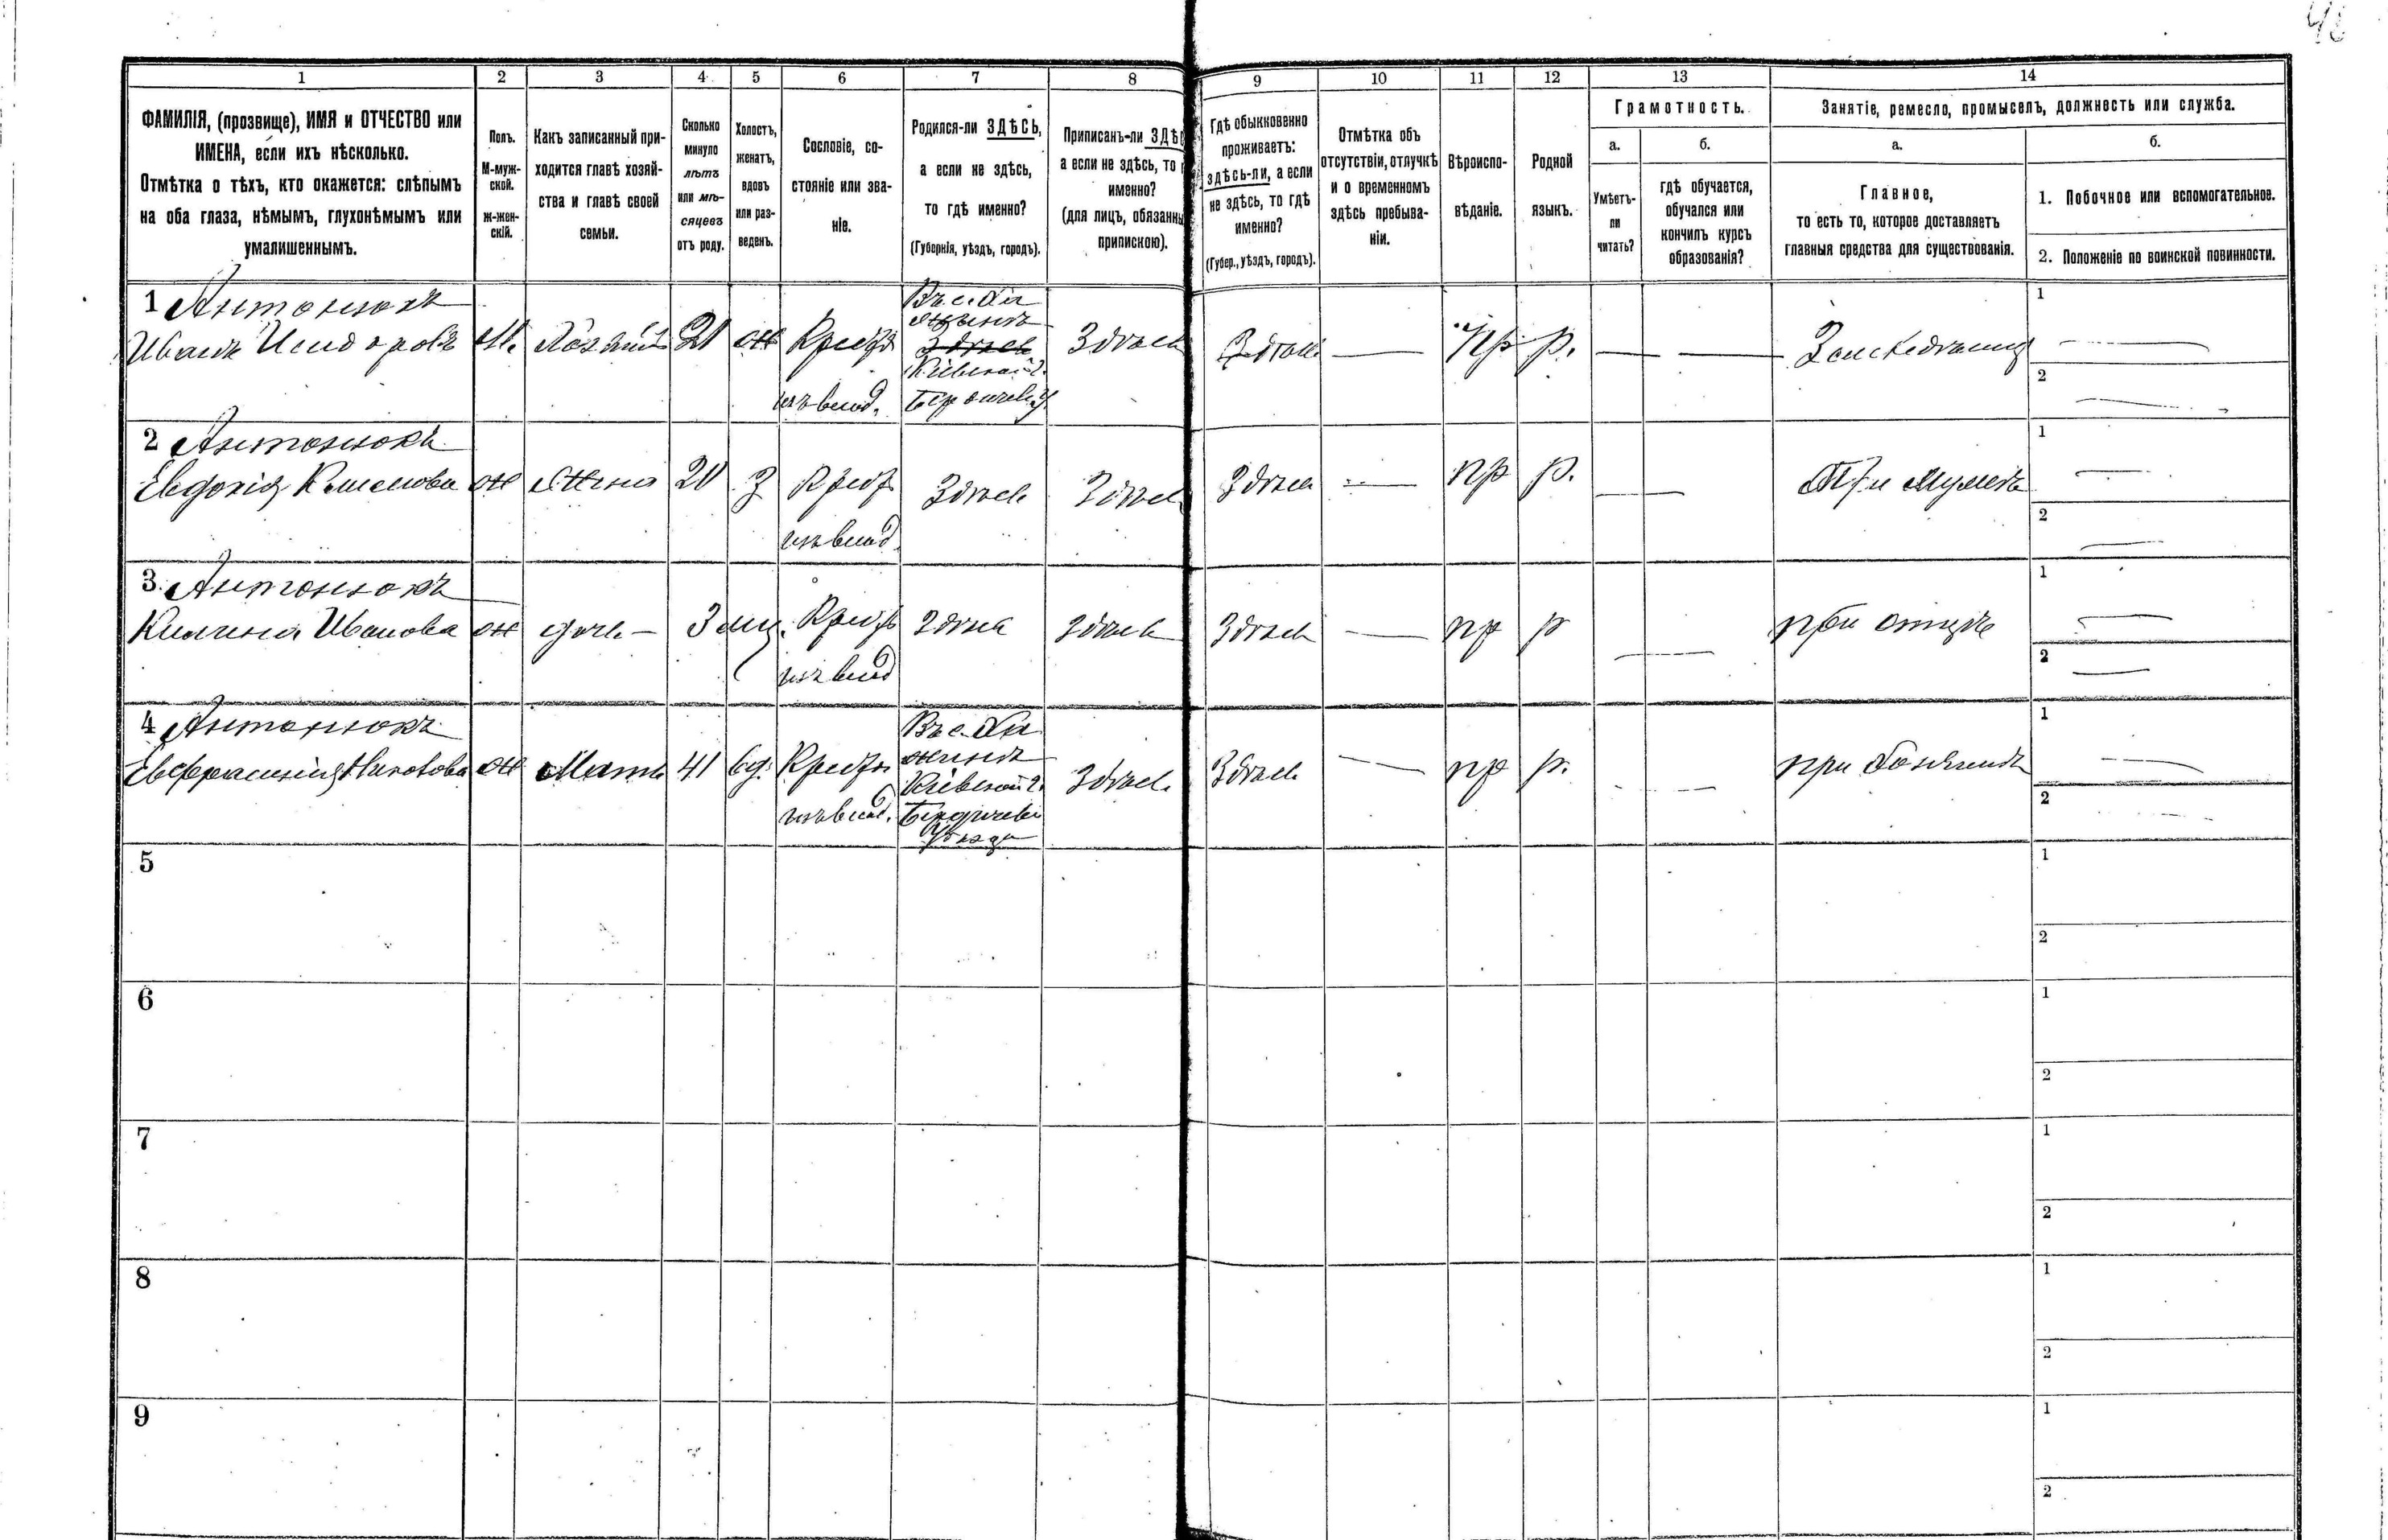 1
2
3
4
5
6
7
8
9
10
11
12
13
14
ФАМИЛІЯ, (прозвище), ИМЯ и ОТЧЕСТВО или
ИМЕНА, если ихъ нѣсколько.
Отмѣтка о тѣхъ, кто окажется: слѣпымъ
на оба глаза, нѣмымъ, глухонѣмымъ или
умалишеннымъ.
Полъ.
М-муж-
ской.
ж-жен-
скій.
Какъ записанный при-
ходится главѣ хозяй-
ства и главѣ своей
семьи.
Сколько
минуло
лѣтъ
или мѣ-
сяцевъ
отъ роду.
Холостъ,
женатъ,
вдовъ
или раз-
веденъ.
Сословіе, со-
стояніе или зва-
ніе.
Родился-ли ЗДѢСЬ,
а если не здѣсь,
то гдѣ именно?
(Губернія, уѣздъ, городъ).
Приписанъ-ли ЗДѢ
а если не здѣсь, то г
именно?
(для лицъ, обязанны
припискою).
Гдѣ обыкновенно
проживаетъ:
здѣсь-ли, а если
не здѣсь, то гдѣ
именно?
(Губер., уѣздъ, городъ).
Отмѣтка объ
отсутствіи, отлучкѣ
и о временномъ
здѣсь пребыва-
ніи.
Вѣроиспо-
вѣданіе.
Родной
языкъ.
Грамотность.
а.
Умѣетъ-
ли
читать?
б.
гдѣ обучается,
обучался или
кончилъ курсъ
образованія?
Занятіе, ремесло, промыселъ, должность или служба.
а.
Главное,
то есть то, которое доставляетъ
главныя средства для существованія.
б.
1. Побочное или вспомогательное.
2. Положеніе по воинской повинности.
1 Антонюкъ
Иванъ Исидоровъ
М.
Хозяинъ
21
ж
Крест
из влад.
Въ с.
Здѣсь
Кіевской г.
Здѣсь
Здѣсь
—
Пр
р.
—
—
Земледѣлецъ
1
2
2 Антонюкъ
Евдокія
ж
Жена
20
з
Крест
из влад
Здѣсь
Здѣсь
Здѣсь
—
пр
р.
При мужѣ
1
2
3 Антонюкъ
Килина Иванова
ж
дочь —
3 мц.
Крест
из влад
Здѣсь
Здѣсь
Здѣсь
—
пр
р
при отцѣ
1
2
4 Антонюкъ
Евфросинія
ж
Мать
41
вд.
Крест
из влад.
Въ с.
Кіевской г.
Бердичев
уѣзда
Здѣсь
Здѣсь
—
пр
р.
при хозяинѣ
1
2
5
1
2
6
1
2
7
1
2
8
1
2
9
1
2